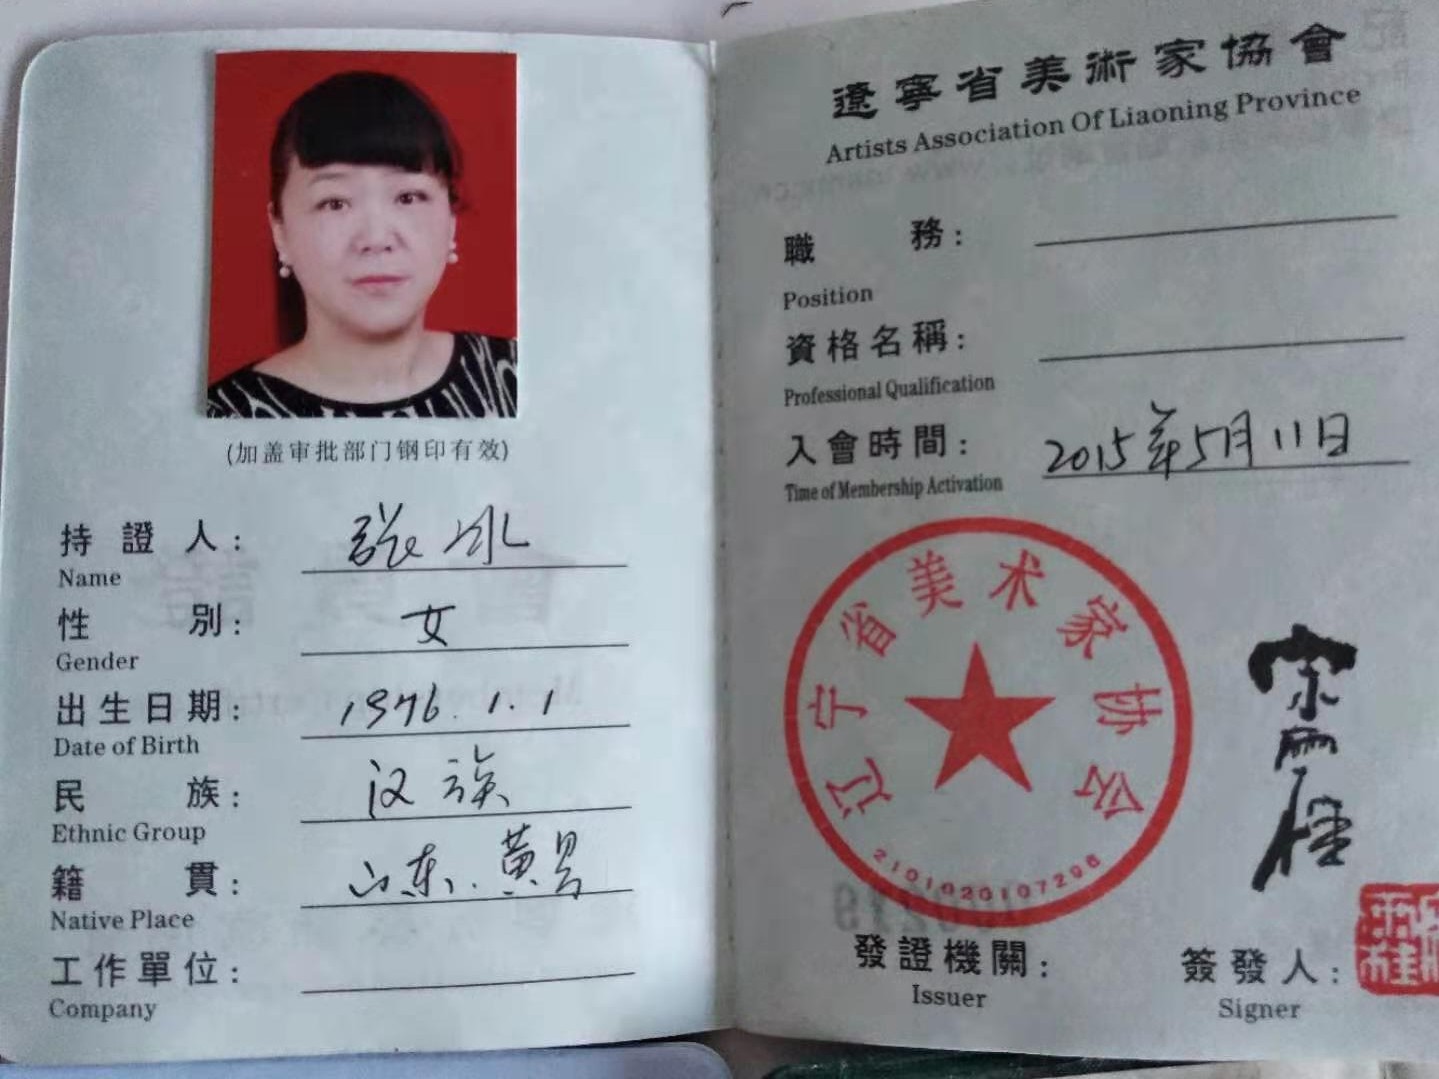 (加盖审批部门钢印有效)
持證人： 张冰
Name
性別： 女
Gender
出生日期： 1976.1.1
Date of Birth
民族： 汉族
Ethnic Group
籍貫： 山东.黄县
Native Place
工作單位：
Company
遼寧省美術家協會
Artists Association Of Liaoning Province
職務：
Position
資格名稱：
Professional Qualification
入會時間： 2015年5月11日
Time of Membership Activation
辽宁省美术家协会
2101020107296
宋雨桂
發證機關：
Issuer
簽發人：
Signer